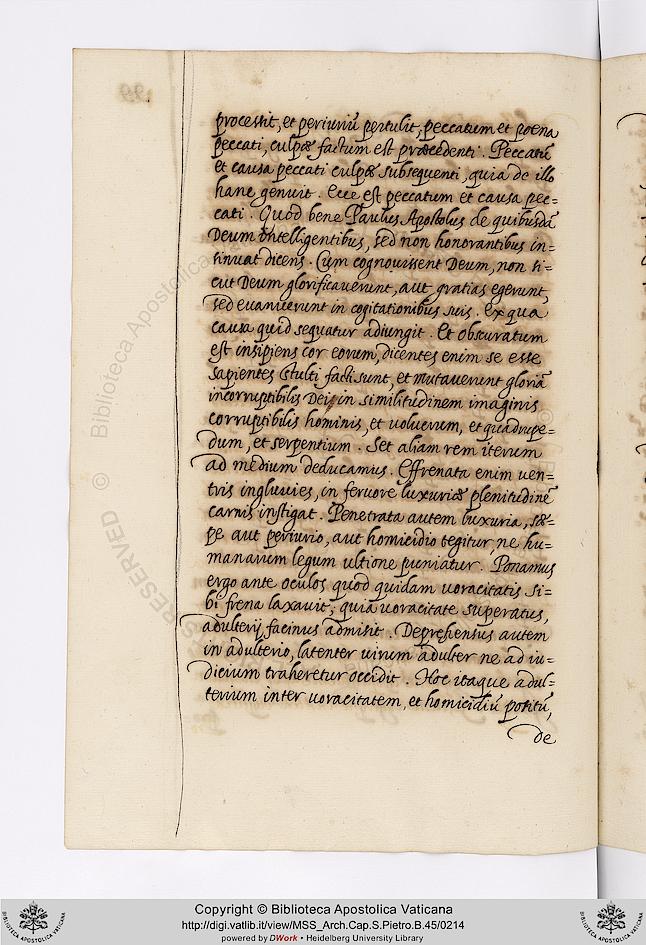 processit, et periuriū pertulit, peccatum et poena
peccati, culpæ factum est præcedenti. Peccatū
et causa peccati culpæ subsequenti, quia de illo
hanc genuit. Ecce est peccatum et causa pec=
cati. Quod bene Paulus Apostolus de quibusdā
Deum intelligentibus, sed non honorantibus in=
sinuat dicens. Cum cognouissent Deum, non si=
cut Deum glorificauerunt, aut gratias egerunt,
sed euanuerunt in cogitationibus suis. Ex qua
causa quid sequatur adiungit. Et obscuratum
est insipiens cor eorum, dicentes enim se esse
sapientes stulti facti sunt, et mutauerunt gloriā
incorruptibilis Dei, in similitudinem imaginis
corruptibilis hominis, et volucrum, et quadrupe=
dum, et serpentium. Set aliam rem iterum
ad medium deducamus. Effrenata enim uen=
tris ingluuies, in feruore luxuriæ plenitudinē
carnis instigat. Penetrata autem luxuria, sæ=
pe aut periurio, aut homicidio tegitur, ne hu=
manarum legum ultione puniatur. Ponamus
ergo ante oculos quod quidam uoracitatis si=
bi frena laxauit, quia uoracitate superatus,
adulterij facinus admisit. Deprehensus autem
in adulterio, latenter uirum adulter ne ad iu=
dicium traheretur occidit. Hoc itaque adul=
terium inter uoracitatem, et homicidiū positū,
de
Biblioteca Apostolica
©
RESERVED
Copyright © Biblioteca Apostolica Vaticana
http://digi.vatlib.it/view/MSS_Arch.Cap.S.Pietro.B.45/0214
powered by DWork • Heidelberg University Library